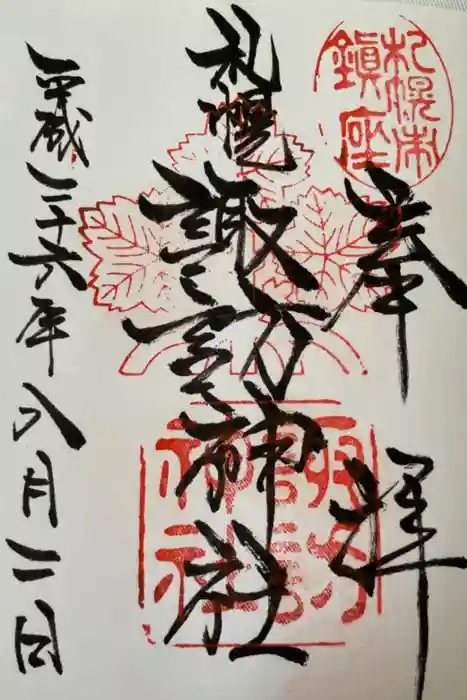 奉拝
札幌市鎮座
札幌諏訪神社
諏訪神社
平成二十六年八月二日